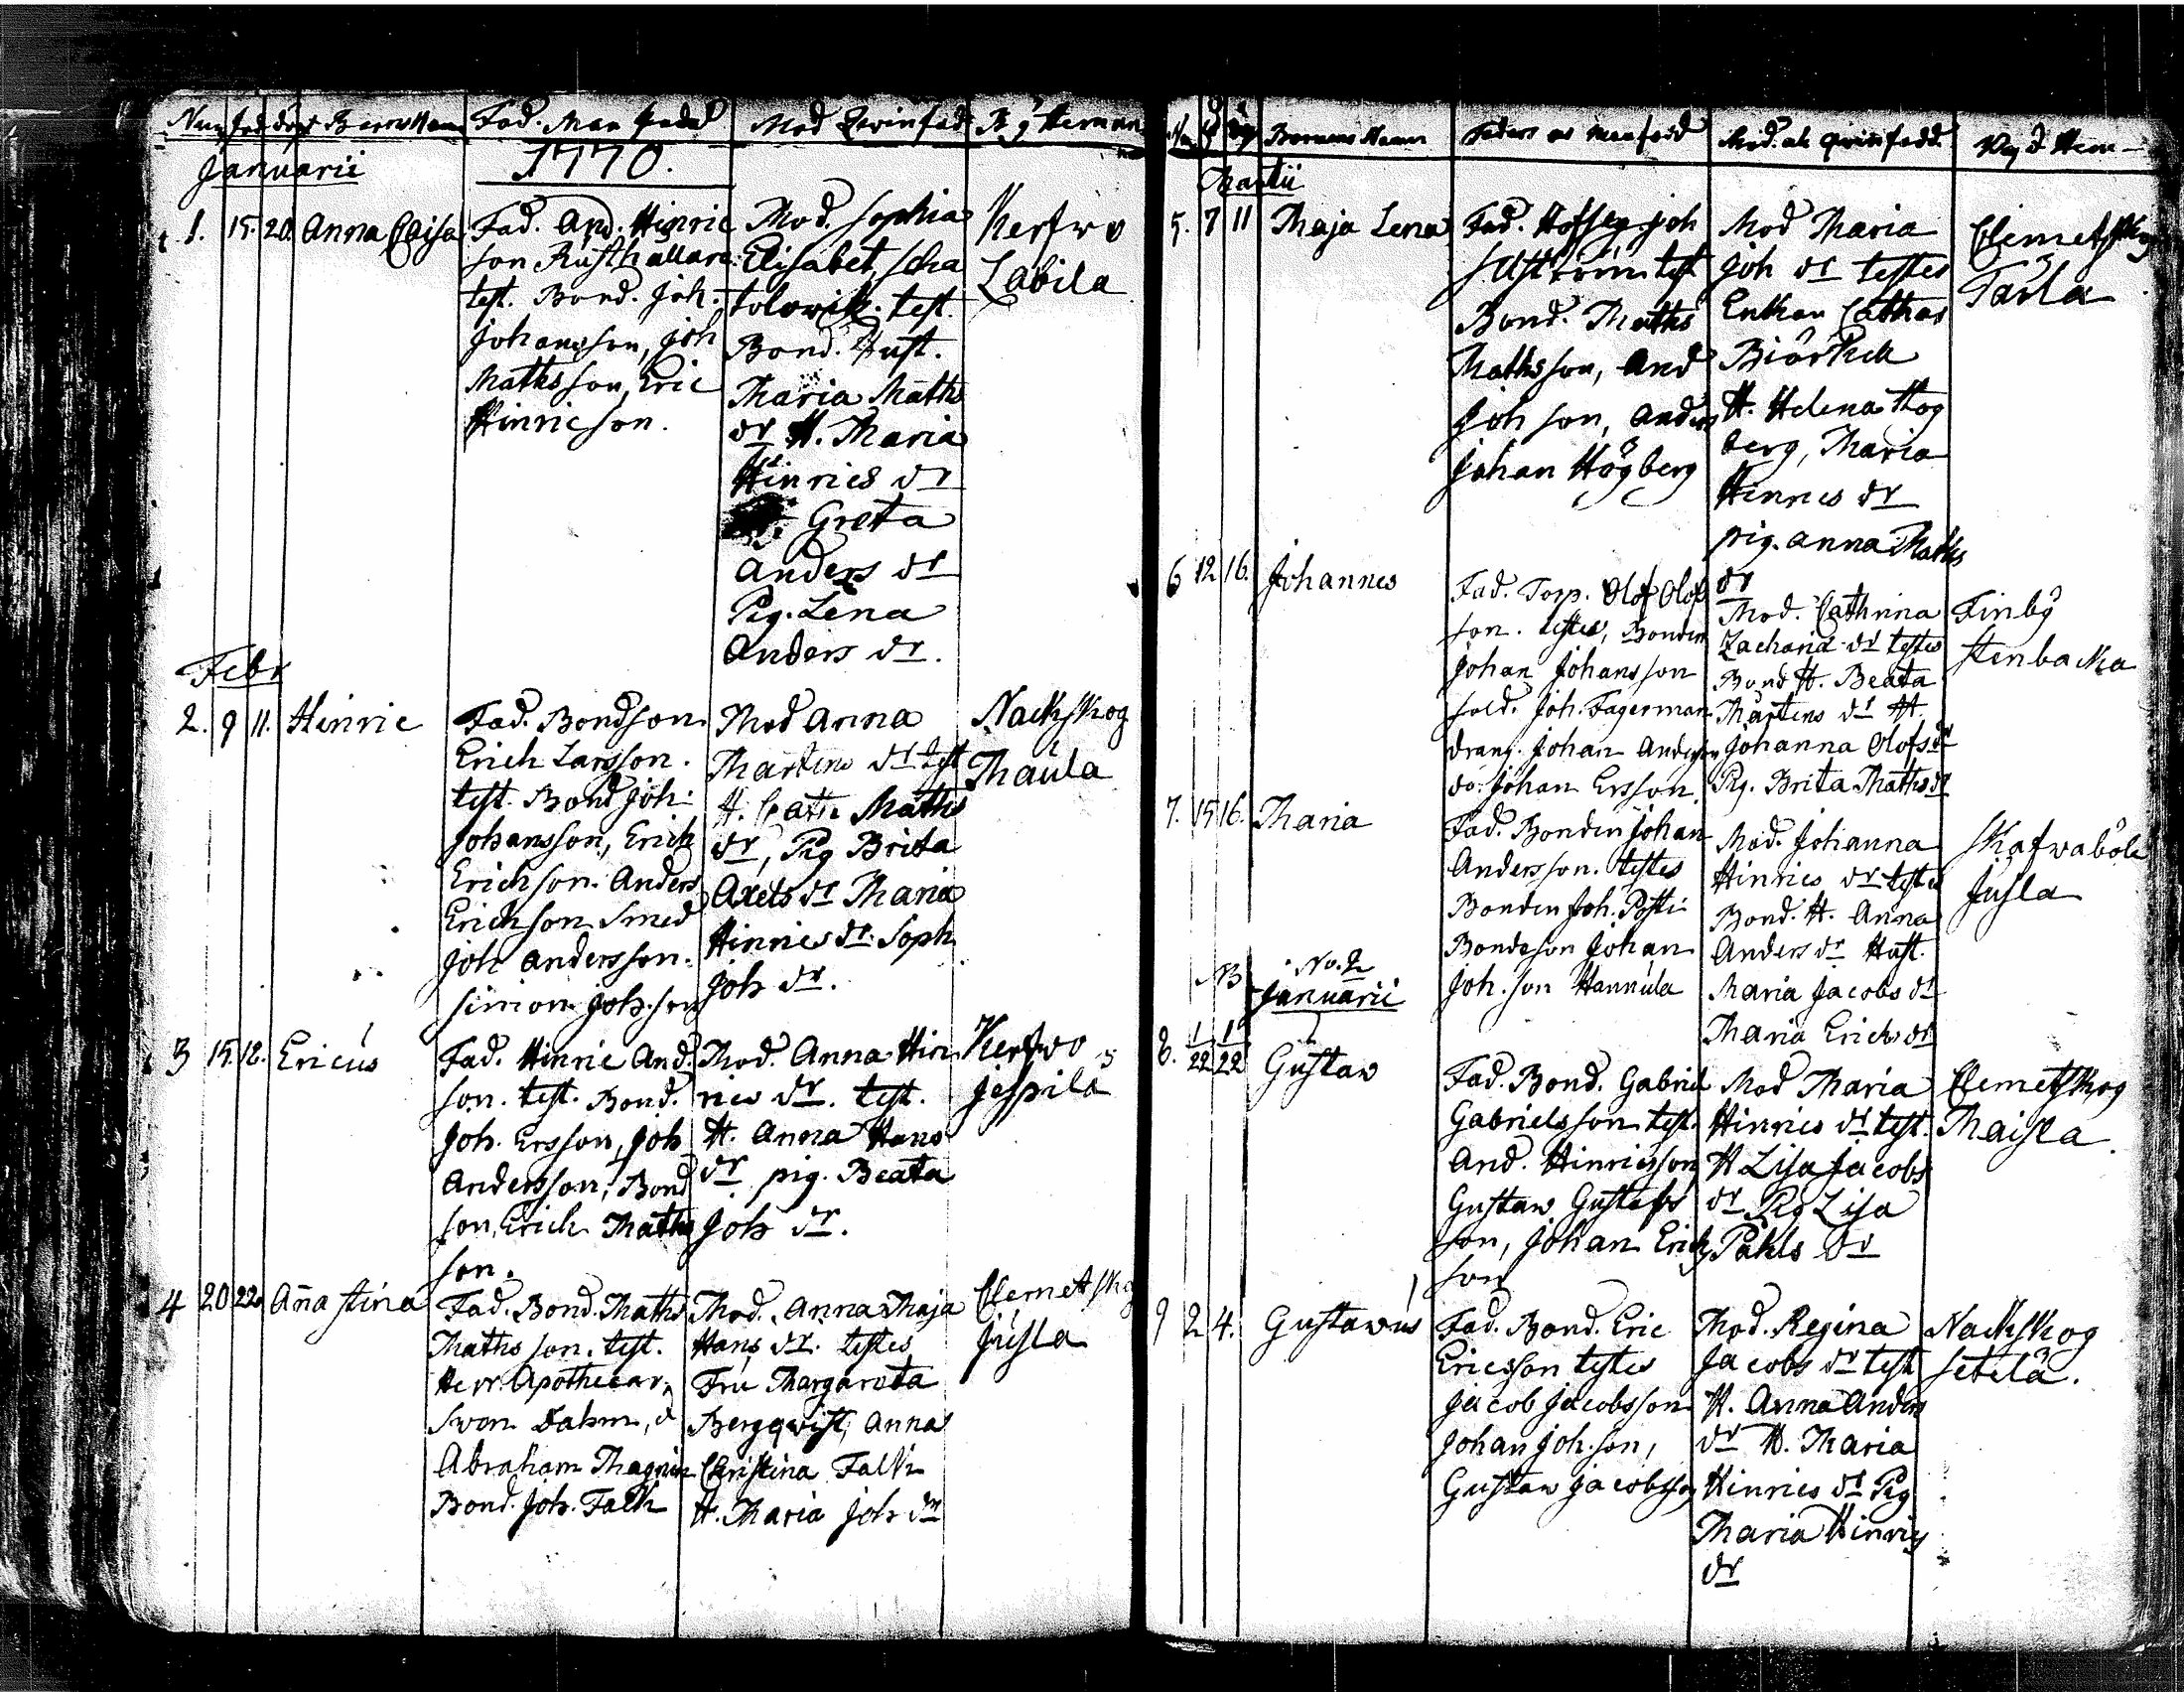 Num föd döpt Barns Namn Fad. Man fadd Mod Qvinfad By Heman
Januarii 1770.
1. 15. 20. Anna Caisa
Fad. And. Hinric
son Rusthållare
test. Bond. Joh.
Johansson, Joh
Mathsson, Eric
Hinricson.
Mod. Sophia
Elisabet, Scha
tolowik. test.
Bond. Hust.
Maria Maths
dr H. Maria
Hinrics dr
Greta
Anders dr
Pig. Lena
Anders dr.
Kerfwo
Labila
Febr
2. 9 11. Hinric
Fad. Bondson
Erich Larsson.
test. Bond Joh:
Johansson, Erich
Erichson. Anders
Erichson Smed
Joh Andersson.
Simon Joh.son
Mod Anna
Martens dr. test
H. Cath: Maths
dr, Pig Brita
Axels dr Maria
Hinrics dr. Soph
Joh dr.
Nackskog
Maula
3 15. 18. Ericus
Fad. Hinric And.
son. test. Bond.
Joh. Ersson, Joh
Andersson, Bond
son, Erich Maths
son.
Mod. Anna Hin
rics dr. test.
H. Anna Hans
dr. pig. Beata
Joh dr.
Kerfwo
Jespilä
4 20 22. Anna Stina
Fad. Bond. Maths
Maths son. test.
Herr. Apothecar.
Swen Dahm, d
Abraham Magnin
Bond. Joh. Falk
Mod. Anna Maja
Hans dr. testes
Fru Margareta
Bergqwist, Anna
Christina Falk
H. Maria Joh dr
Clemetskog
Jusla
Barnens Namn Faders ok manfadd Mod. ok qvinfadd.
Martii
5. 7 11 Maja Lena
Fad. Joh
test
Bond. Maths
Mathsson, And
Joh son, Anders
Johan Högberg
Mod Maria
Joh dr testes
Enkan Cathar
Biörkell
H. Helena Hög
berg, Maria
Henrics dr
pig. Anna Maths
dr
Clemetskog
Tärlä
6 12 16. Johannes
Fad. Torp. Olof Olof
son. testes, Bonden
Johan Johansson
Sold. Joh. Fagerman
Dräng. Johan Anderson
do: Johan Ersson.
Mod. Cathrina
Zacharia dr testes
Bond H. Beata
Martens dr H.
Johanna Olofs dr
Pig. Brita Maths dr
Finby
Stenbacka
7. 15 16. Maria
Fad. Bonden Johan
Andersson. testes
Bonden Joh. Påsti
Bondeson Johan
Joh. son Hannula
Mod. Johanna
Hinrics dr testes
Bond. H. Anna
Anders dr Hust.
Maria Jacobs dr
Maria Erichs dr
Skafwabôle
Jusla
NB No. 2
Januarii
8. 1/22 1/22 Gustav
Fad. Bond. Gabriel
Gabrielsson test.
And. Hinricsson
Gustaw Gustafs
son, Johan Erich
son
Mod Maria
Hinrics dr test.
H Lisa Jacobs
dr Pig Lisa
Påhls dr
Clemetskog
Maisla
9 2 4. Gustavus
Fad. Bond. Eric
Ericsson testes
Jacob Jacobsson
Johan Joh.son,
Gustaw Jacobsson
Mod. Regina
Jacobs dr test
H. Anna Anders
dr H. Maria
Hinrics dr Pig
Maria Hinrics
dr
Nackskog
Setelä.